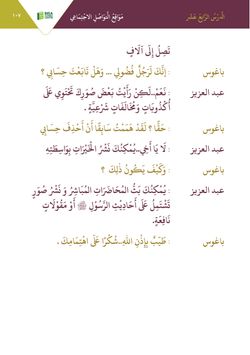 الدَّرْسُ الرَّابِعَ عَشَرَ
مَوَاقِعُ التَّوَاصُلِ الِاجْتِمَاعِي
١٠٧
تَصِلُ إِلَى آلَافٍ
باغوس : إِنَّكَ لَرَجُلٌ فُضُولِي ... وَهَلْ تَابَعْتَ حِسَابِي ؟
عبد العزيز : نَعَمْ..لَكِنْ رَأَيْتُ بَعْضَ صُوَرِكَ تَحْتَوِي عَلَى
أُكْذُوبَاتٍ وَمُخَالَفَاتٍ شَرْعِيَّةٍ .
باغوس : حَقًّا ؟ لَقَدْ هَمَمْتُ سَابِقًا أَنْ أَحْذِفَ حِسَابِي
عبد العزيز : لَا يَا أَخِي..يُمْكِنُكَ نَشْرُ الْخَيْرَاتِ بِوَاسِطَتِهِ
باغوس : وَكَيْفَ يَكُونُ ذَلِكَ ؟
عبد العزيز : يُمْكِنُكَ بَثُّ الْمُحَاضَرَاتِ الْمُبَاشِرُ وَ نَشْرُ صُوَرٍ
تَشْتَمِلُ عَلَى أَحَادِيْثِ الرَّسُوْلِ ﷺ أَوْ مَقُوْلَاتٍ
نَافِعَةٍ.
باغوس : طَيِّبٌ بِإِذْنِ اللهِ..شُكْرًا عَلَى اهْتِمَامِكَ .